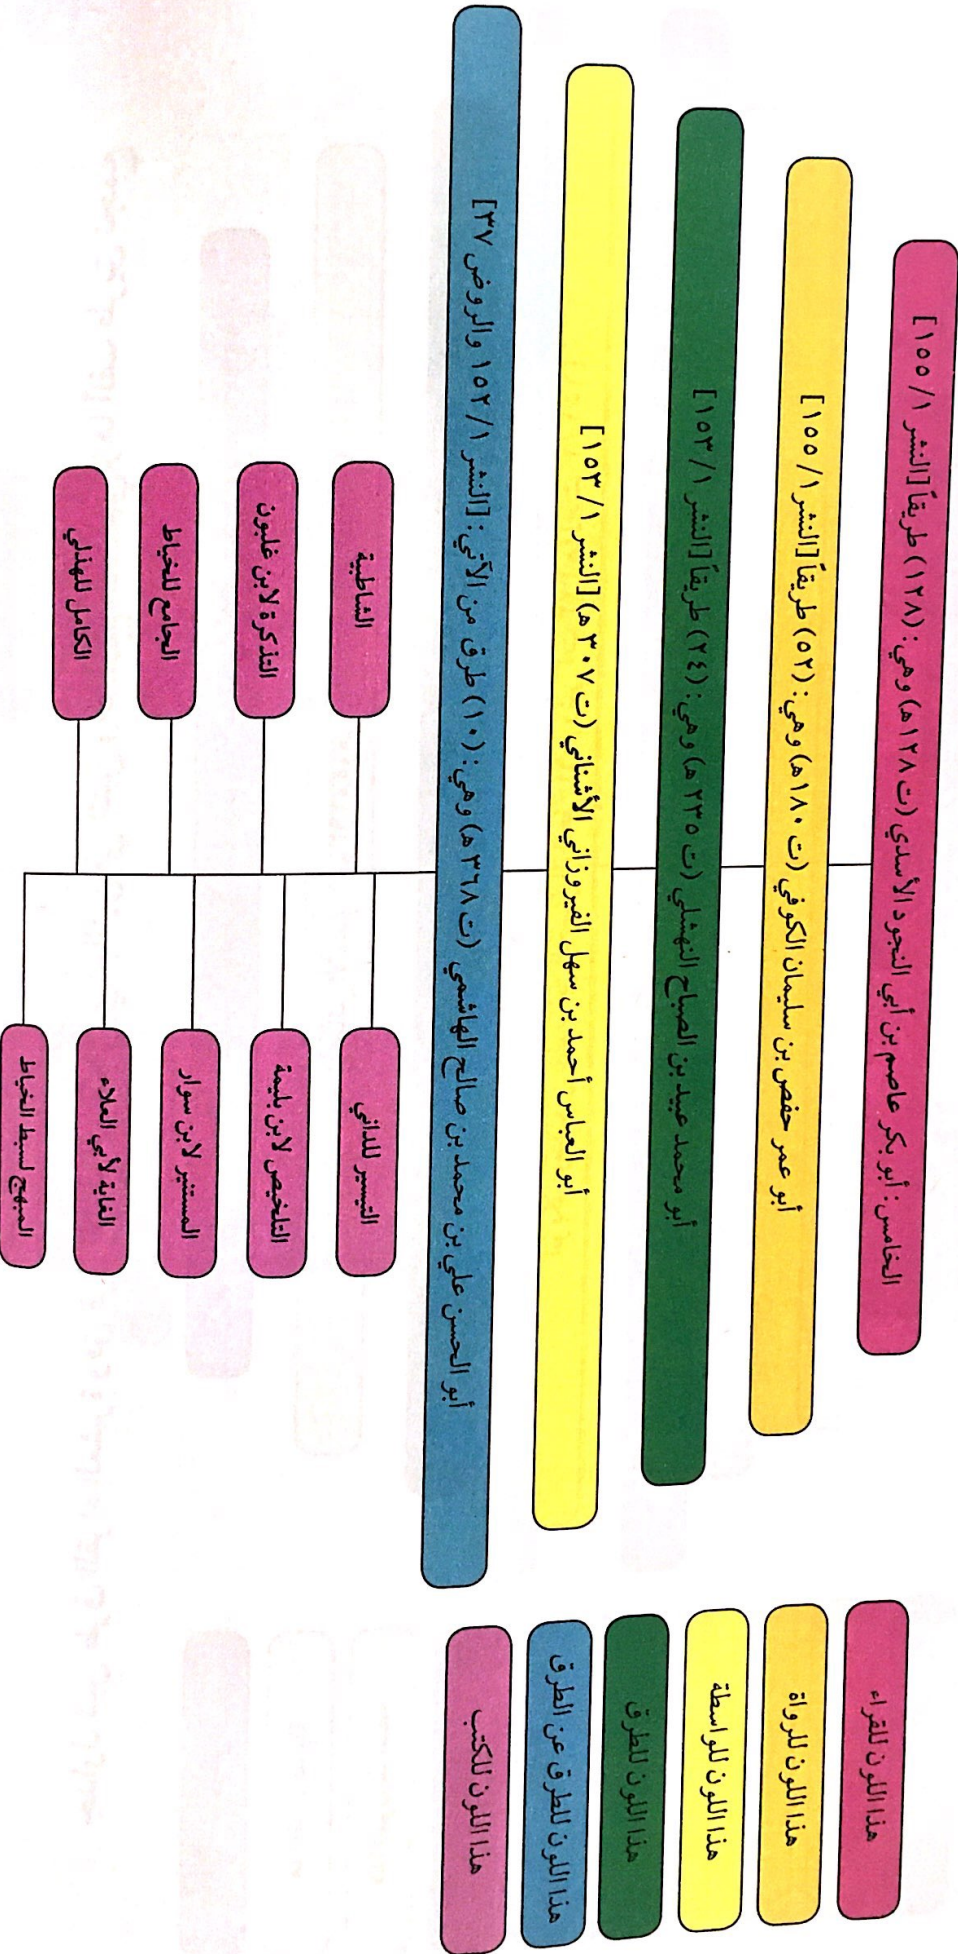 الخامس: أبو بكر عاصم بن أبي النجود الأسدي (ت ١٢٨ هـ) وهي: (١٢٨) طريقاً [النشر ١/ ١٥٥]
أبو عمر حفص بن سليمان الكوفي (ت ١٨٠ هـ) وهي: (٥٢) طريقاً [النشر ١/ ١٥٥]
أبو محمد عبيد بن الصباح النهشلي (ت ٢٣٥ هـ) وهي: (٢٤) طريقاً [النشر ١/ ١٥٣]
أبو العباس أحمد بن سهل الفيروزاني الأشناني (ت ٣٠٧ هـ) [النشر ١/ ١٥٣]
أبو الحسن علي بن محمد بن صالح الهاشمي (ت ٣٦٨ هـ) وهي: (١٠) طرق من الآتي: [النشر ١/ ١٥٢ والروض ٣٧]
التيسير للداني
الشاطبية
التلخيص لابن بليمة
التذكرة لابن غلبون
المستنير لابن سوار
الجامع للخياط
الغاية لأبي العلاء
الكامل للهذلي
المبهج لسبط الخياط
هذا اللون للقراء
هذا اللون للرواة
هذا اللون للواسطة
هذا اللون للطرق
هذا اللون للطرق عن الطرق
هذا اللون للكتب